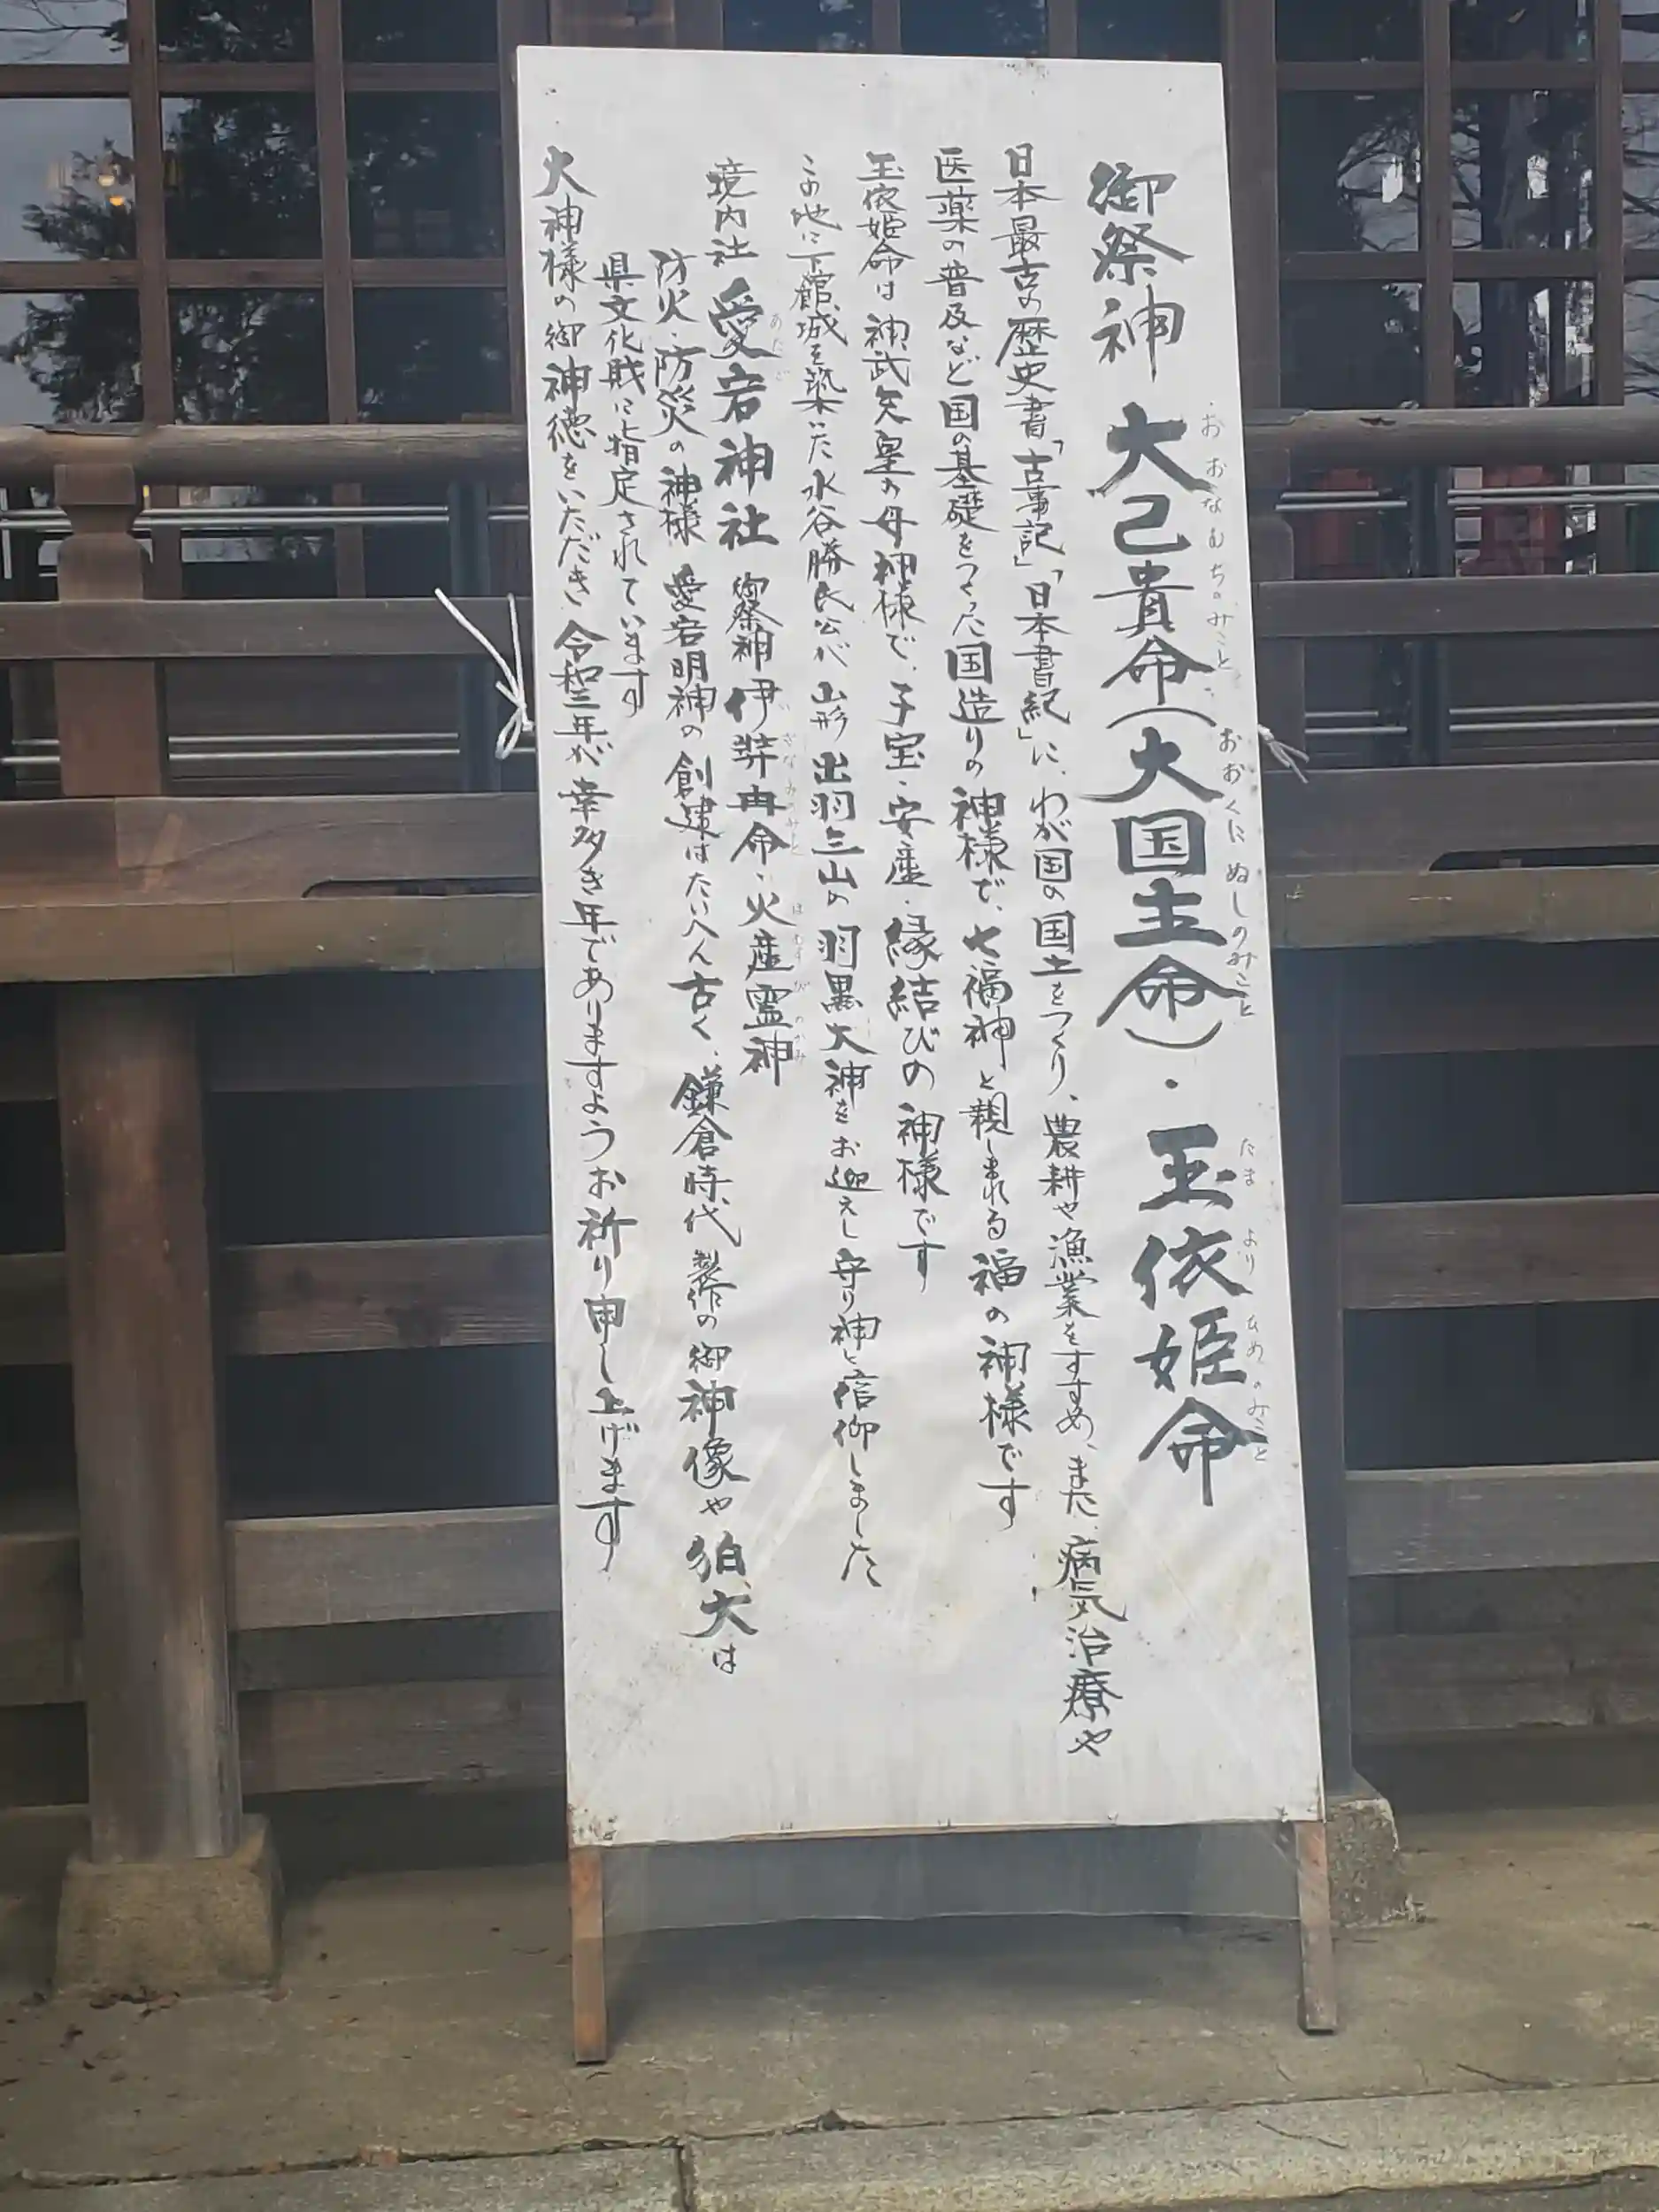 御祭神 大己貴命(大国主命)・玉依姫命
おおなむちのみこと おおくにぬしのみこと たまよりひめのみこと
日本最古の歴史書「古事記」「日本書紀」に、わが国の国土をつくり、農耕や漁業をすすめ、また、病気治療や
医薬の普及など国の基礎をつくった国造りの神様で、七福神と親しまれる福の神様です
玉依姫命は神武天皇の母神様で、子宝・安産・縁結びの神様です
この地に下館城を築いた水谷勝氏公が山形出羽三山の羽黒大神をお迎えし守り神と信仰しました
境内社 愛宕神社 御祭神 伊弉冉命・火産霊神
あたご いざなみのみこと ほむすびのかみ
防火・防災の神様 愛宕明神の創建はたいへん古く、鎌倉時代製作の御神像や狛犬は
県文化財に指定されています
大神様の御神徳をいただき令和三年が幸多き年でありますようお祈り申し上げます